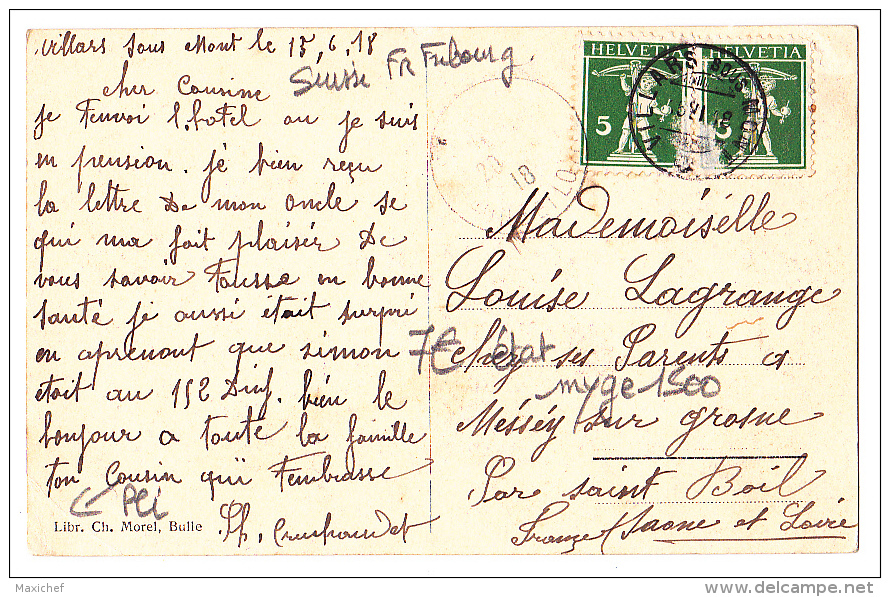 Villars sous Mont le 15,6,18
Suisse FR Fribourg.
cher Cousine
je Tenvoi l.hotel ou je suis
en pension. jé bien reçu
la lettre De mon oncle se
qui ma fait plaisér De
vous savoir Tousse en bonne
santé je aussi était surpri
en aprenont que simon
etoit au 152 Dinf. bien le
bonjour a toute la famille
ton Cousin quï Tembrasse
← Pli
Libr. Ch. Morel, Bulle
HELVETIA HELVETIA
5 5
VILLARS SOUS MONT
VI.18
20
18
Mademoisélle
Louise Lagrange
chez ses Parents a
7€ état
myge 1500
Mésséy sur grosne
Par saint Boil
France (Saone et Loire
Maxichef
delcampe.net